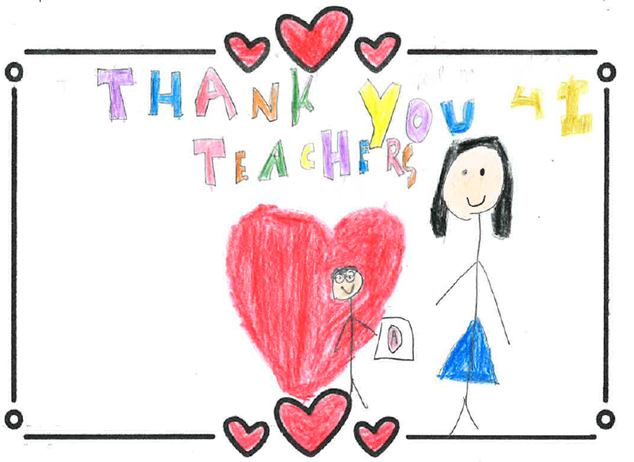 THANK YOU 4I
TEACHERS
A